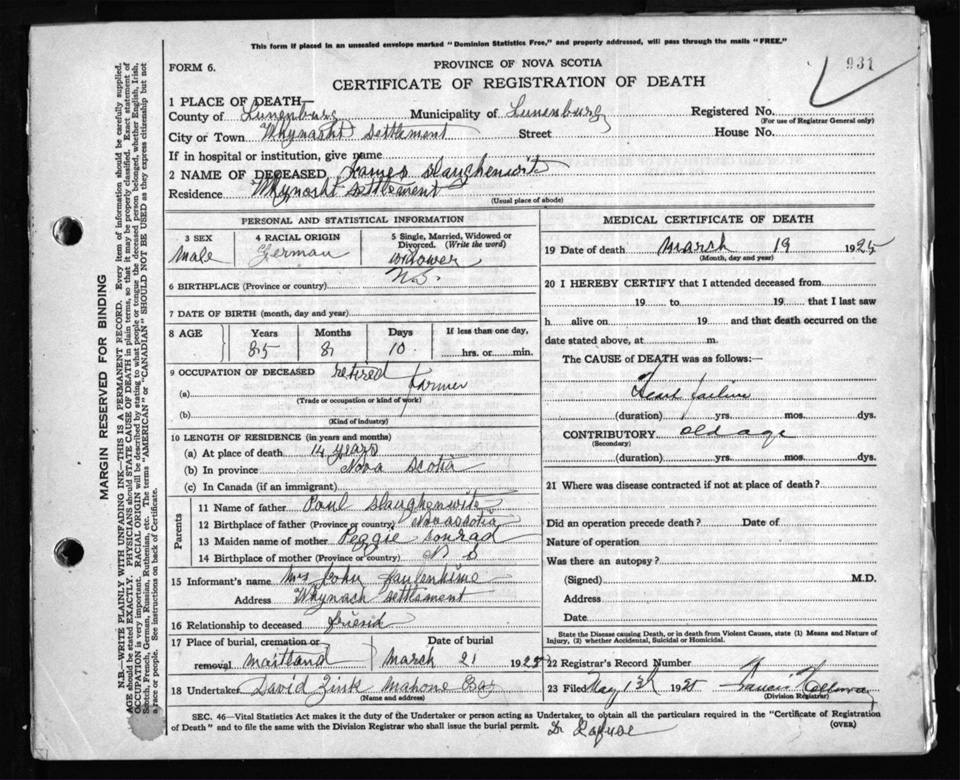 This form if placed in an unsealed envelope marked "Dominion Statistics Free," and properly addressed, will pass through the mails "FREE."
FORM 6.
PROVINCE OF NOVA SCOTIA
931
CERTIFICATE OF REGISTRATION OF DEATH
1 PLACE OF DEATH—
County of Lunenburg Municipality of Lunenburg Registered No.
(For use of Registrar General only)
City or Town Whynacht Settlement Street House No.
If in hospital or institution, give name
2 NAME OF DECEASED, James Slaughenwite
Residence Whynacht Settlement
(Usual place of abode)
PERSONAL AND STATISTICAL INFORMATION
3 SEX 4 RACIAL ORIGIN 5 Single, Married, Widowed or Divorced. (Write the word)
Male German widower
6 BIRTHPLACE (Province or country) N.S.
7 DATE OF BIRTH (month, day and year)
8 AGE Years Months Days If less than one day,
85 8 10 hrs. or min.
9 OCCUPATION OF DECEASED retired farmer
(a)
(Trade or occupation or kind of work)
(b)
(Kind of industry)
10 LENGTH OF RESIDENCE (in years and months)
(a) At place of death 14 years
(b) In province Nova Scotia
(c) In Canada (if an immigrant)
Parents
11 Name of father Paul Slaughenwite
12 Birthplace of father (Province or country) Nova Scotia
13 Maiden name of mother Peggie Conrad
14 Birthplace of mother (Province or country) N S
15 Informant's name Mrs John
Address Whynach Settlement
16 Relationship to deceased friend
17 Place of burial, cremation or removal Maitland Date of burial March 21 1925
18 Undertaker David Zink Mahone Bay
(Name and address)
MEDICAL CERTIFICATE OF DEATH
19 Date of death March 19 1925
(Month, day and year)
20 I HEREBY CERTIFY that I attended deceased from
19 to 19 that I last saw
h alive on 19 and that death occurred on the
date stated above, at m.
The CAUSE of DEATH was as follows:—
Heart failure
(duration) yrs. mos. dys.
CONTRIBUTORY old age
(Secondary)
(duration) yrs. mos. dys.
21 Where was disease contracted if not at place of death?
Did an operation precede death? Date of
Nature of operation
Was there an autopsy?
(Signed) M.D.
Address
Date
State the Disease causing Death, or in death from Violent Causes, state (1) Means and Nature of Injury, (2) whether Accidental, Suicidal or Homicidal.
22 Registrar's Record Number
23 Filed May 1925
(Division Registrar)
SEC. 46—Vital Statistics Act makes it the duty of the Undertaker or person acting as Undertaker, to obtain all the particulars required in the "Certificate of Registration
of Death" and to file the same with the Division Registrar who shall issue the burial permit. (OVER)
Dr
MARGIN RESERVED FOR BINDING
N.B.—WRITE PLAINLY WITH UNFADING INK—THIS IS A PERMANENT RECORD. Every item of information should be carefully supplied.
AGE should be stated EXACTLY. PHYSICIANS should STATE CAUSE OF DEATH in plain terms, so that it may be properly classified. Exact statement of
OCCUPATION is very important. RACIAL ORIGIN will be described by stating to what people or tongue the deceased person belonged, whether English, Irish,
Scotch, French, German, Russian, Ruthenian, etc. The terms "AMERICAN" or "CANADIAN" SHOULD NOT BE USED as they express citizenship but not
a race or people. See instructions on back of Certificate.